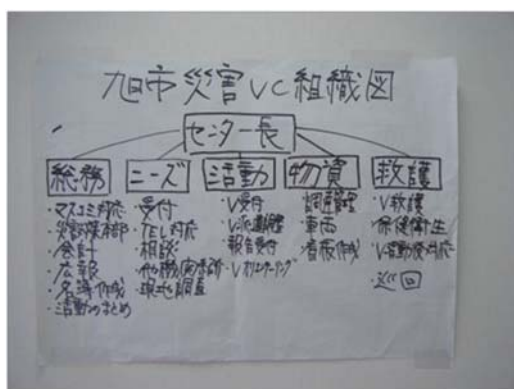 旭市災害VC組織図
センター長
総務
・マスコミ対応
・災害対策本部
・会計
・広報
・名簿作成
・活動のまとめ
ニーズ
・受付
・TEL対応
・相談
・現地調査
活動
・V受付
・報告受付
・Vオリエンテーリング
物資
・調達管理
・車両
・看板作成
救護
・V救護
・保健衛生
・V活動後対応
・巡回